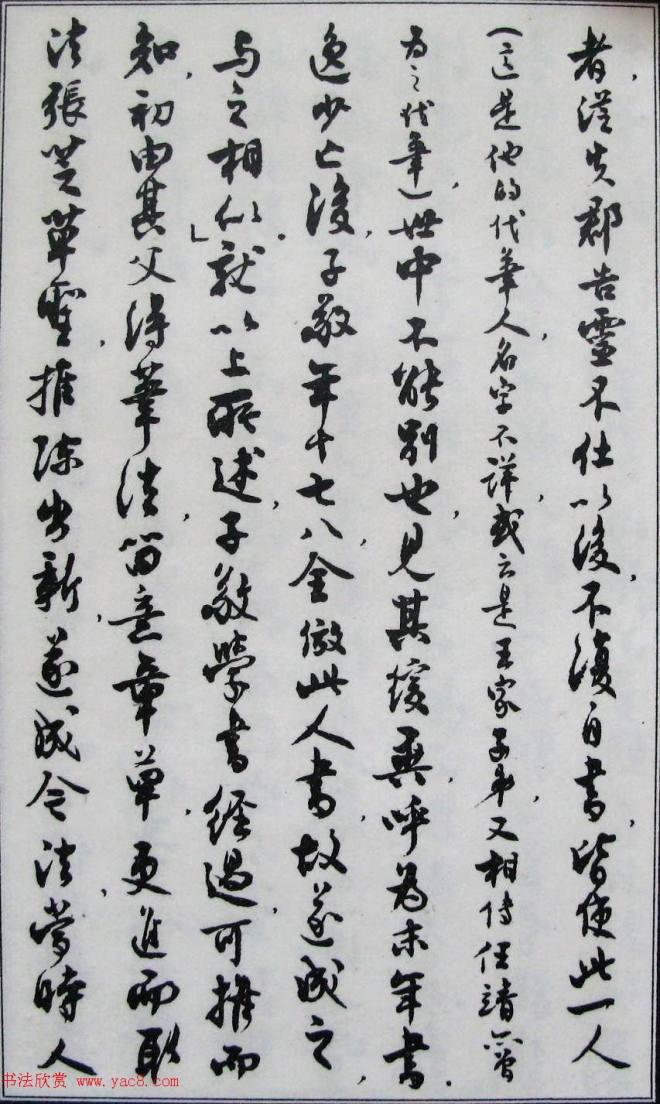 者，從失郡告靈不仕以後，不復自書，皆使此一人
（這是他的代筆人，名字不詳，或云是王家子弟，又相傳任靖曾
为之代筆），世中不能别也，見其缓異，呼為末年書．
逸少亡後，子敬年十七八，全倣此人書，故遂成之，
与之相似」。就以上所述，子敬學書經過，可推而
知，初由其父得筆法，留意章草，更進而取
法張芝草聖，推陈出新，遂成今法，當時人
书法欣赏 www.yac8.com